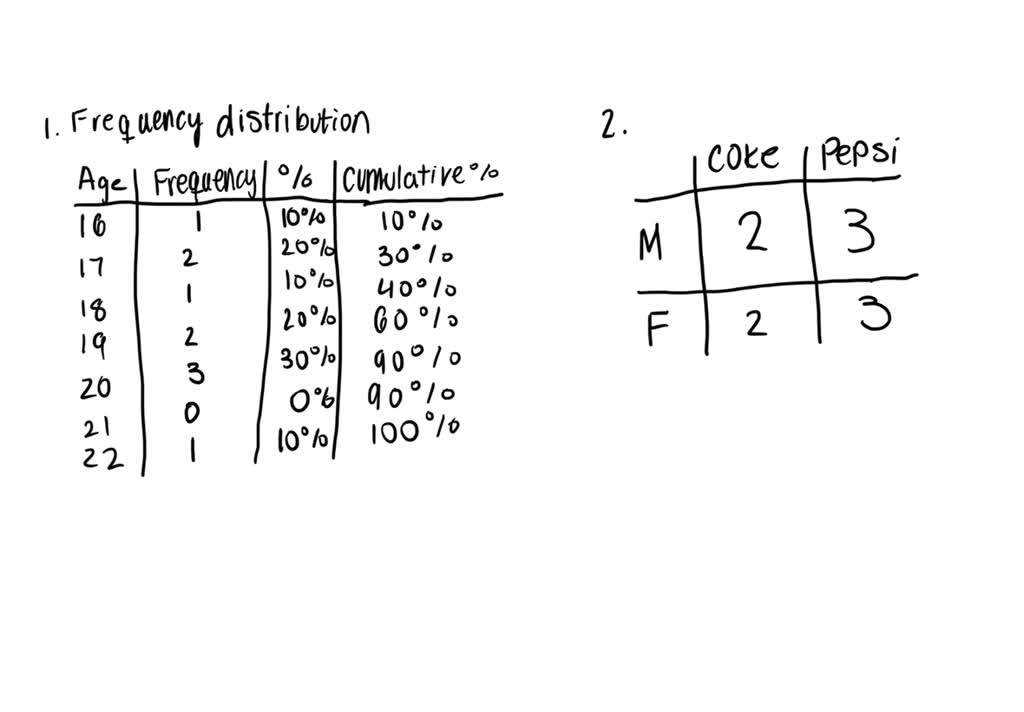 1. Frequency distribution
Age Frequency % Cumulative %
16 1 10% 10%
17 2 20% 30%
18 1 10% 40%
19 2 20% 60%
20 3 30% 90%
21 0 0% 90%
22 1 10% 100%
2.
Coke Pepsi
M 2 3
F 2 3